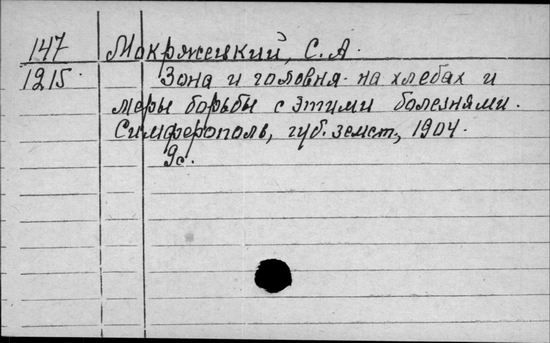 147 Мокржецкий, С. А.
1215 Зона и головня на хлебах и
меры борьбы с этими болезнями.
Симферополь, губ. земст., 1904.
9с.